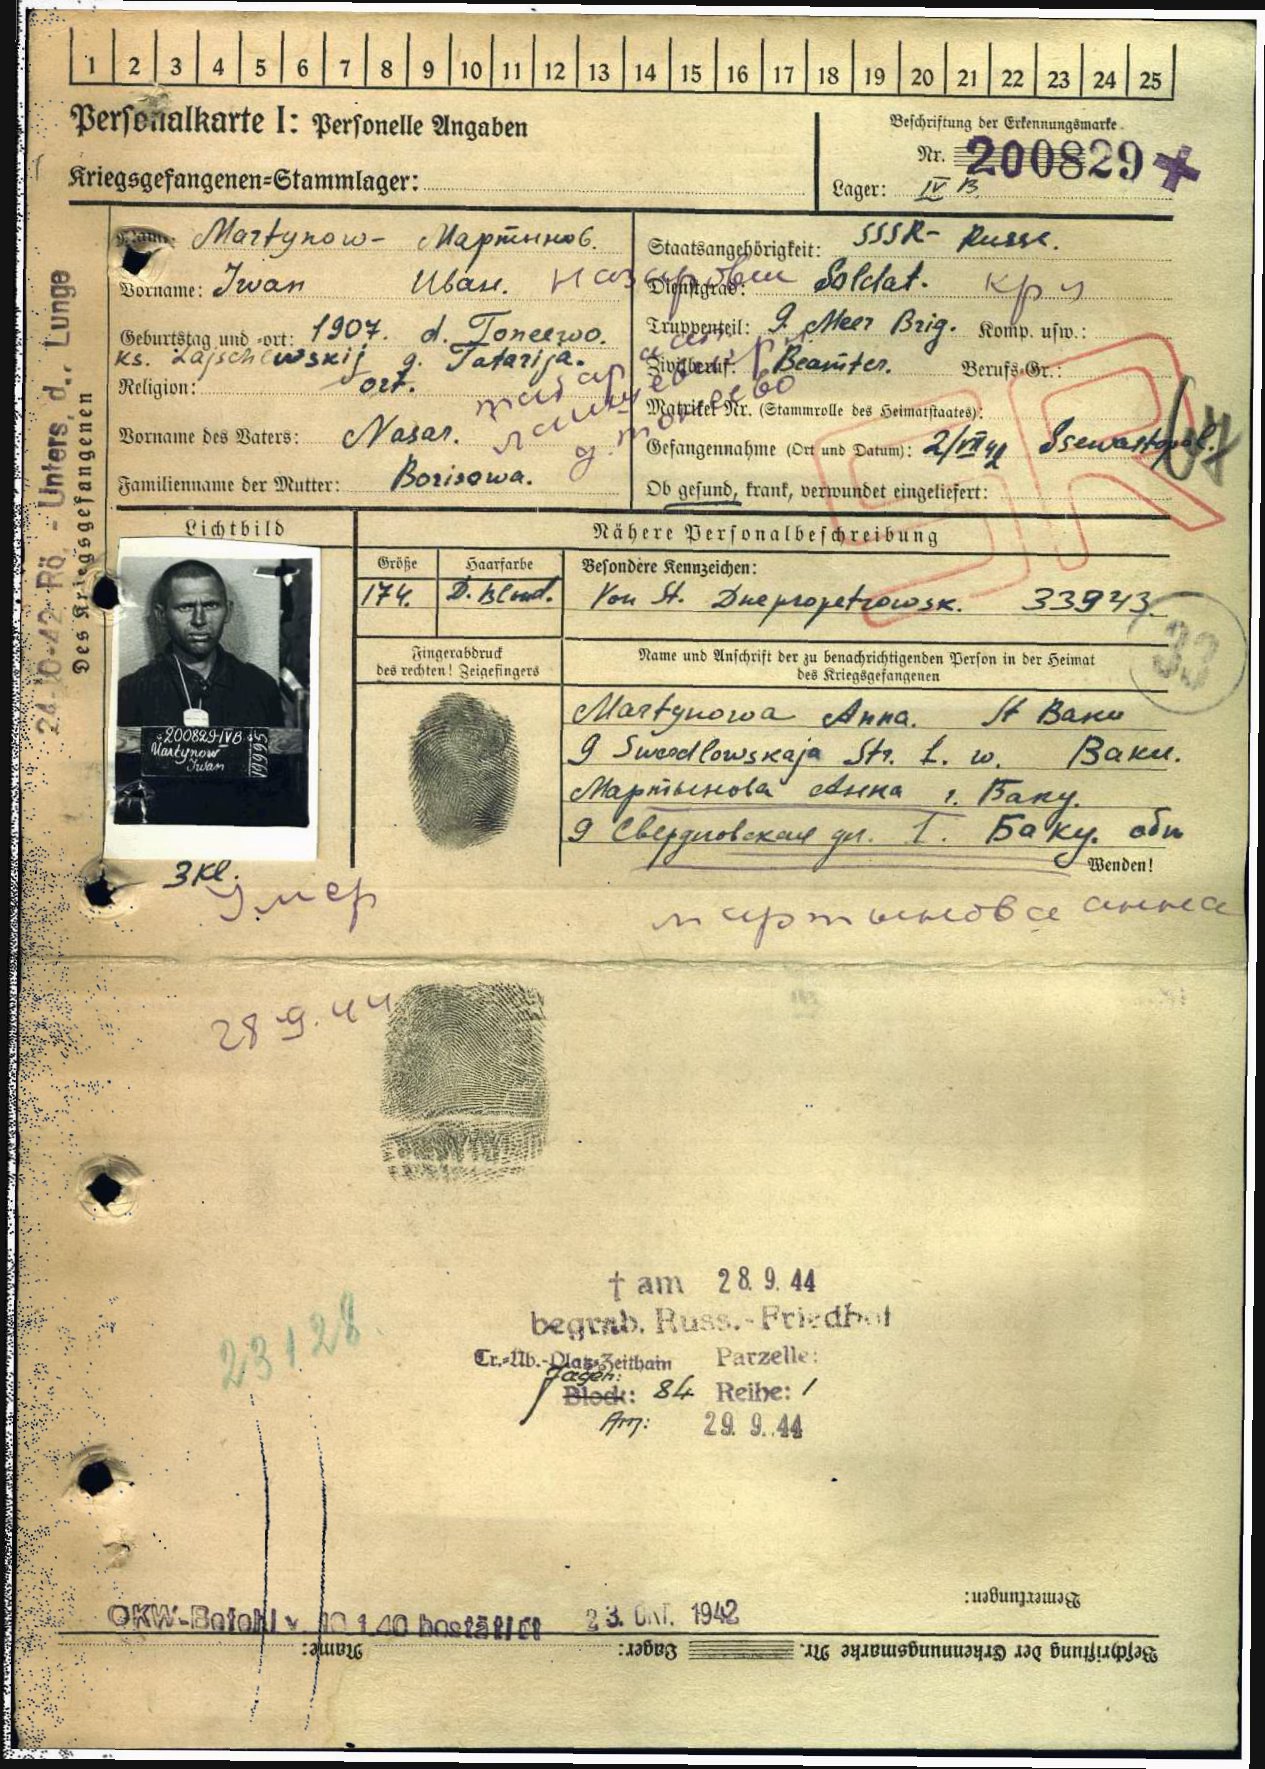 1 2 3 4 5 6 7 8 9 10 11 12 13 14 15 16 17 18 19 20 21 22 23 24 25
Personalkarte I: Personelle Angaben
Kriegsgefangenen=Stammlager:
Beschriftung der Erkennungsmarke
Nr. 200829
Lager: IV B
Name: Martynow - Мартынов.
Vorname: Iwan Иван.
Geburtstag und -ort: 1907. d.
ks. g. Tatarija.
Religion: ort.
Vorname des Vaters: Nasar.
Familienname der Mutter: Borisowa.
Staatsangehörigkeit: SSSR - Russe.
Dienstgrad: Soldat.
Truppenteil: 9. Meer Brig. Komp. usw.:
Zivilberuf: Beamter. Berufs-Gr.:
Matrikel Nr. (Stammrolle des Heimatstaates):
Gefangennahme (Ort und Datum): 2/VII 42 Ssewastopol.
Ob gesund, krank, verwundet eingeliefert:
SR
24-10-42 Rö. - Unters. d. Lunge
Des Kriegsgefangenen
Lichtbild
200829 IVB
Martynow
Iwan
19995
Nähere Personalbeschreibung
Größe Haarfarbe Besondere Kennzeichen:
174. D. Blond. Von St. Dnepropetrowsk. 33943.
33
Fingerabdruck
des rechten! Zeigefingers
Name und Anschrift der zu benachrichtigenden Person in der Heimat
des Kriegsgefangenen
Martynowa Anna. St Baku
9 Swedlowskaja Str. Baku.
Мартынова Анна г. Баку.
9 Свердловская ул. Баку. обл
Wenden!
3 Kl.
Умер
мартынова анна
28 9. 44
† am 28. 9. 44
begrab. Russ.-Friedhof
Tr.=Üb.-Platz=Zeithain Parzelle:
Jagen:
Block: 84 Reihe: 1
Am: 29. 9. 44
23128
Bemerkungen:
OKW-Befehl v. 10.1.40 bestätigt 23. OKT. 1942
Beschriftung der Erkennungsmarke Nr. Lager: Name: